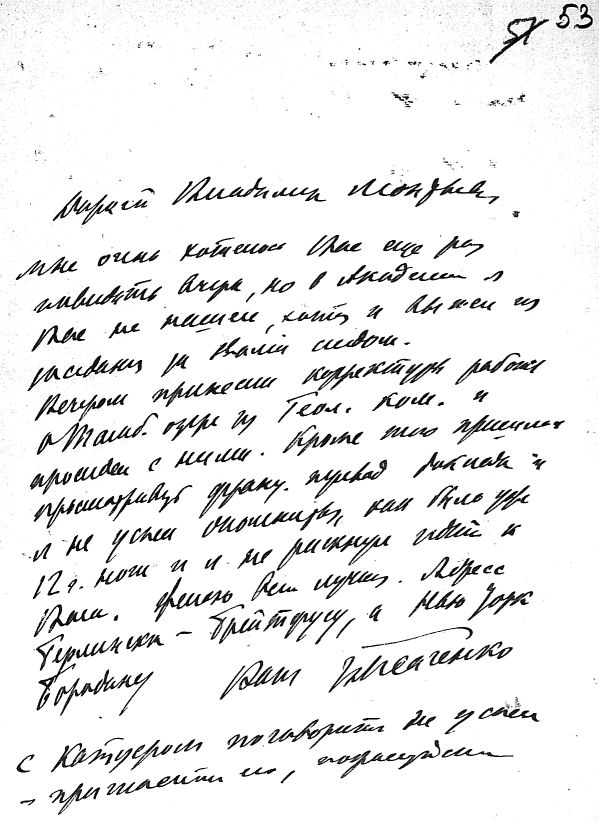 51 53
Дорогой Владимир Леонтьевич,
Мне очень хотелось Вас еще раз
повидать вчера, но в Академии я
Вас не нашел, хотя и вышел из
заседания за Вами следом.
Вечером принесли корректуры работы
о Тамб. озере из Геол. Ком. и
просидел с ними. Кроме того пришлось
просматривать франц. перевод доклада и
я не успел опомниться, как было уже
12 ч. ночи и я не рискнул идти к
Вам. Желаю Вам лучших. Адресс
Берлински – Брейтфусу, а Нью Йорк
Бородину Ваш Исаченко
С Катуером поговорить не успел
– пригласить его,